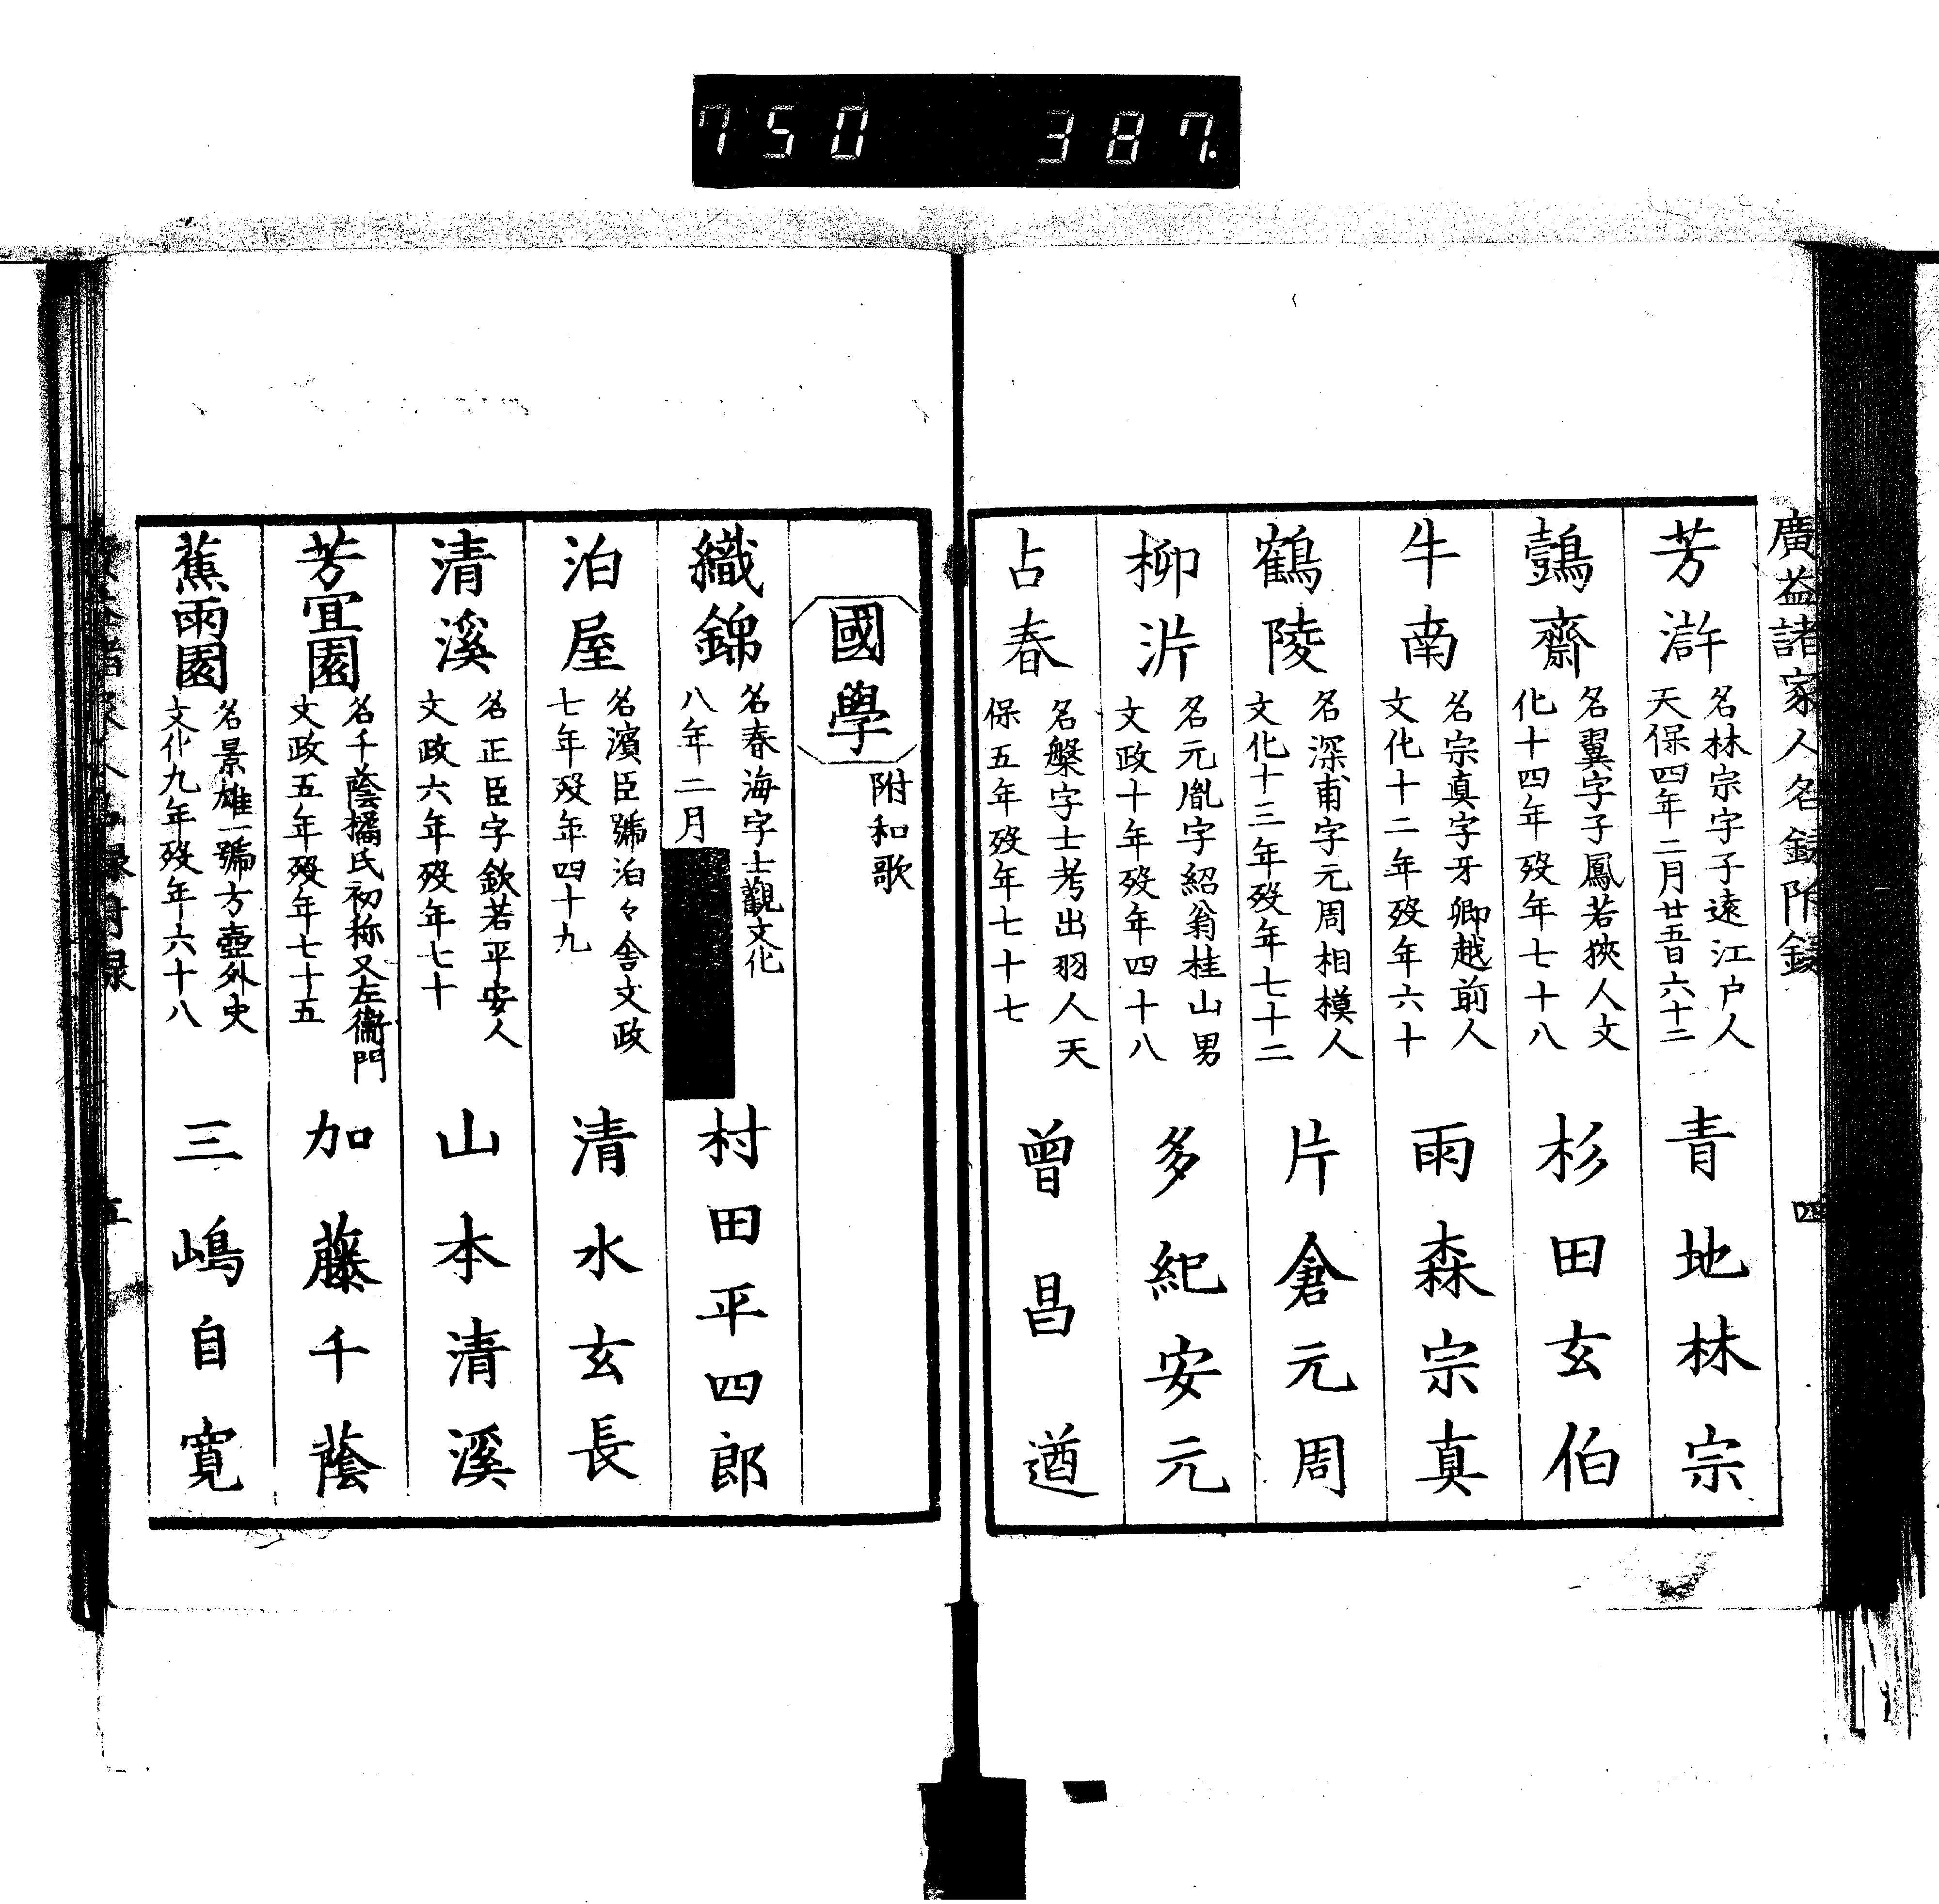 750 387.
廣益諸家人名録附録
四
芳滸
名林宗字子遠江户人
天保四年二月廿五日六十二
青地林宗
鷧齋
名翼字子鳳若狹人文
化十四年歿年七十八
杉田玄伯
牛南
名宗真字牙卿越前人
文化十二年歿年六十
雨森宗真
鶴陵
名深甫字元周相模人
文化十三年歿年七十二
片倉元周
柳沜
名元胤字紹翁桂山男
文政十年歿年四十八
多紀安元
占春
名槃字士考出羽人天
保五年歿年七十七
曾昌遒
國學
附和歌
織錦
名春海字士觀文化
八年二月
村田平四郎
泊屋
名濱臣號泊々舎文政
七年歿年四十九
清水玄長
清溪
名正臣字欽若平安人
文政六年歿年七十
山本清溪
芳宜園
名千蔭橘氏初称又左衞門
文政五年歿年七十五
加藤千蔭
蕉雨園
名景雄一號方壺外史
文化九年歿年六十八
三嶋自寛